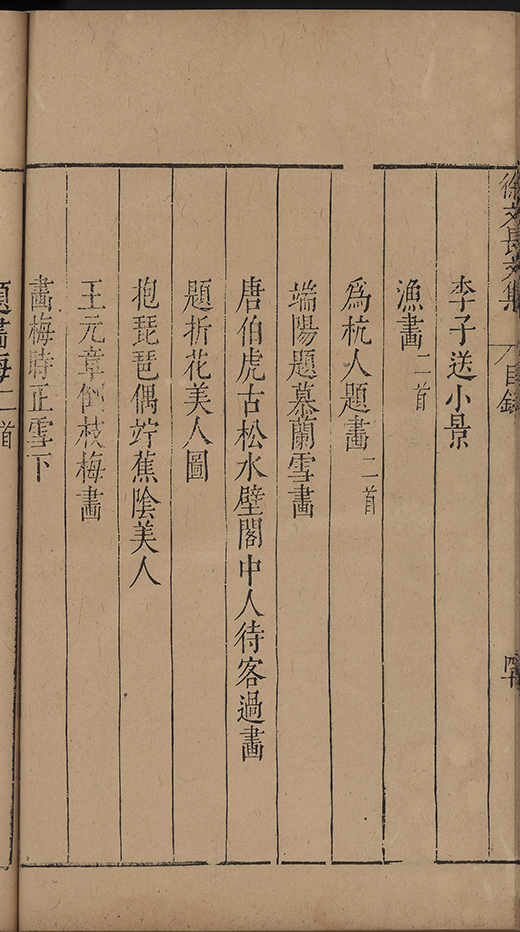 徐文長文集
目錄
李子送小景
漁畫二首
爲杭人題畫二首
端陽題慕蘭雪畫
唐伯虎古松水壁閣中人待客過畫
題折花美人圖
抱琵琶偶竚蕉陰美人
王元章倒枝梅畫
畫梅時正雪下
題畫梅二首